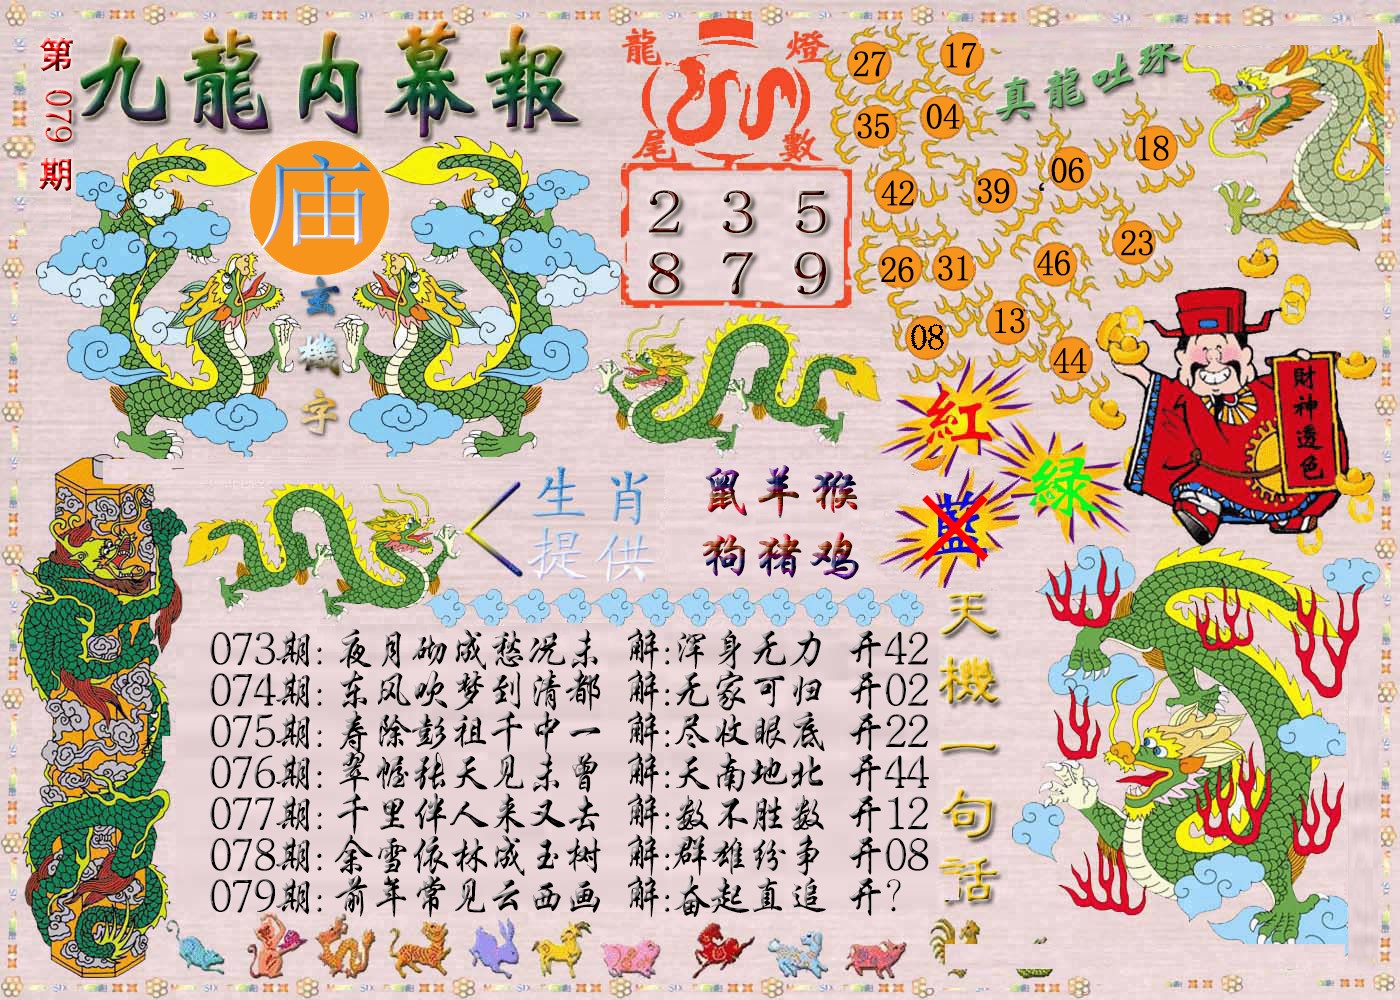 第079期
九龍内幕報
庙
玄機字
龍燈
尾數
2 3 5
8 7 9
27 17
35 04
42 39 06 18
26 31 46 23
08 13 44
真龍吐珠
財神透色
紅
绿
藍
生肖 鼠羊猴
提供 狗猪鸡
天機一句話
073期: 夜月砌成愁况未 解:浑身无力 开42
074期: 东风吹梦到清都 解:无家可归 开02
075期: 寿除彭祖千中一 解:尽收眼底 开22
076期: 翠幄张天见未曾 解:天南地北 开44
077期: 千里伴人来又去 解:数不胜数 开12
078期: 余雪依林成玉树 解:群雄纷争 开08
079期: 前年常见云西画 解:奋起直追 开?